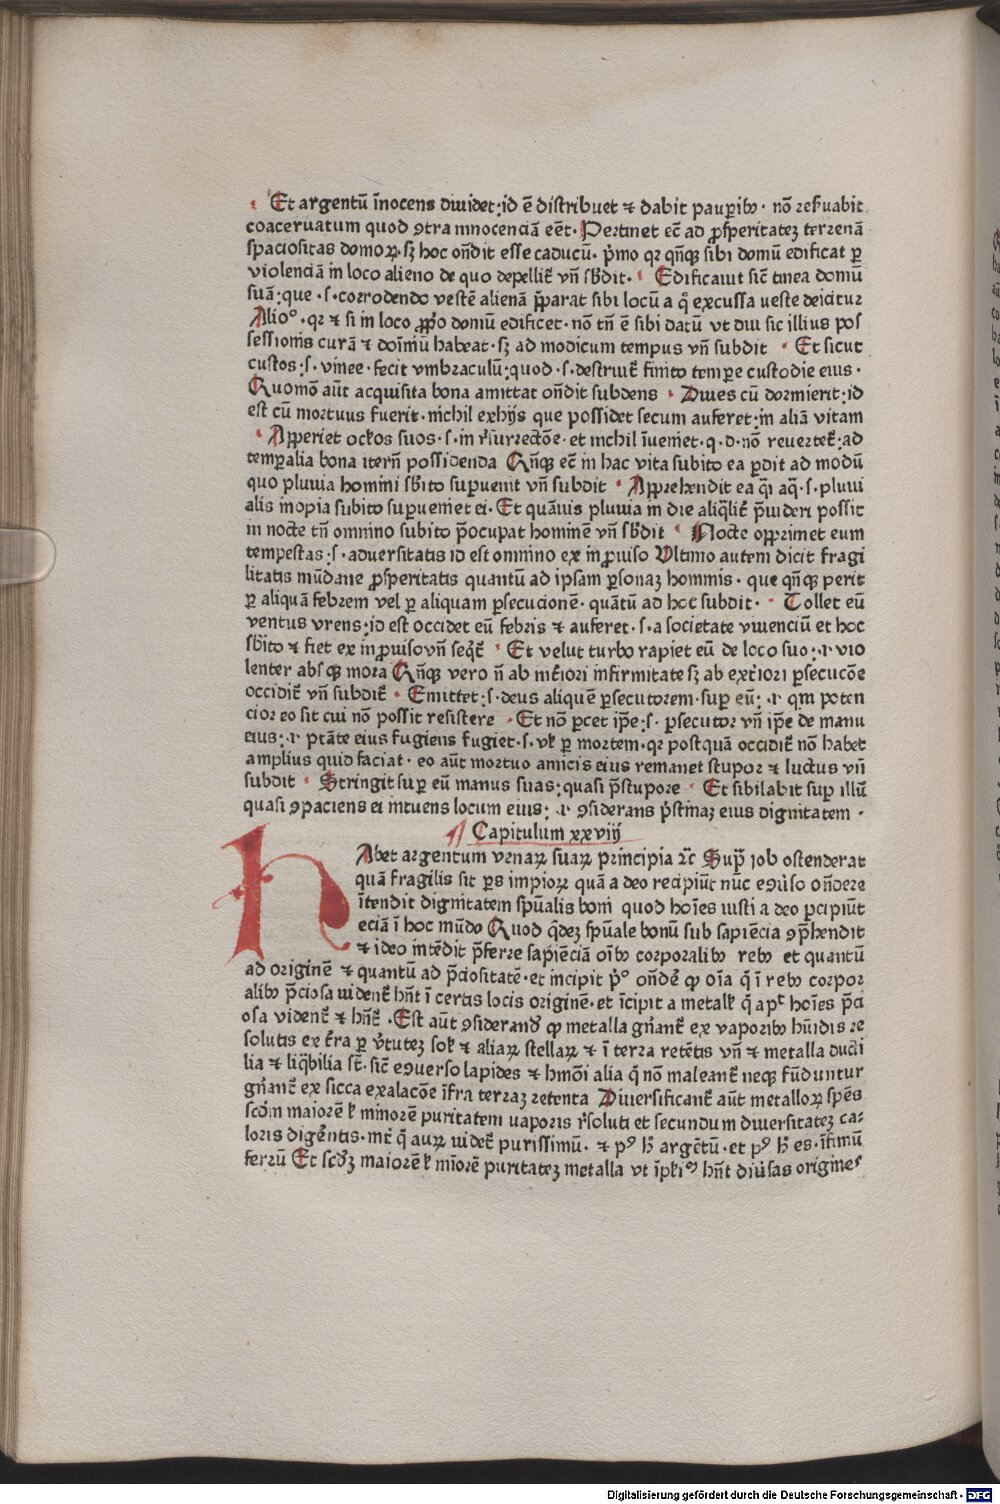 Et argentū īnocens diuidet:id ē distribuet ⁊ dabit paup̱ibꝰ· nō reẜuabit
coaceruatum quod ꝯtra innocenciā eēt· Pertinet ec̄ ad ꝓsperitatē terrenā
spaciositas domoꝝ. sꝫ hoc oñdit esse caducū· p̄mo qꝛ qn̄qꝫ sibi domū edificat ꝑ
violenciā in loco alieno de quo depellit᷑ vn̄ sb̄dit· Edificauit sic̄ tinea domū
suā:que ·s· corrodendo vestē alienā p̄parat sibi locū a q̄ excussa ueste deicitur
Alioº· qꝛ ⁊ si in loco ꝓpo domū edificet· nō tn̄ ē sibi datū vt diu sic illius pos
sessionis curā ⁊ doīniū habeat· sꝫ ad modicum tempus vn̄ subdit · Et sicut
custos:s· vinee· fecit vmbraculū:quod ·s· destruit᷑ finito temꝑe custodie eius·
Quomō aūt acquisita bona amittat oñdit subdens · Diues cū dormierit:id
est cū mortuus fuerit· nichil ex hijs que possidet secum auferet:in aliā vitam
· Apperiet oclꝰos suos· s· in r̄surrectōe· et nichil īueniet· q· d· nō reuertet᷑:ad
temꝑalia bona iterū possidenda Qn̄qꝫ ec̄ in hac vita subito ea ꝑdit ad modū
quo pluuia homini sb̄ito suꝑuenit vn̄ subdit · Apprehendit ea q̄i aq̄· s· pluui
alis inopia subito suꝑueniet ei· Et quāuis pluuia in die aliq̄lit᷑ p̄uideri possit
in nocte tn̄ omnino subito p̄ocupat hominē vn̄ sb̄dit · Nocte opprimet eum
tempestas:s· aduersitatis id est omnino ex inꝓuiso Vltimo autem dicit fragi
litatis mūdane ꝓsperitatis quantū ad ipsam ꝑsonaꝫ hominis· que qn̄qꝫ perit
ꝑ aliquā febrem vel ꝑ aliquam ꝑsecucionē· quātū ad hoc subdit· · Tollet eū
ventus vrens:id est occidet eū febris ⁊ auferet· s· a societate viuenciū et hoc
sb̄ito ⁊ fiet ex inꝓuiso vn̄ seq̄t᷑ · Et velut turbo rapiet eū de loco suo:·i· vio
lenter absqꝫ mora Qn̄qꝫ vero n̄ ab int̄iori infirmitate sꝫ ab ext̄iori ꝑsecucōe
occidit᷑ vn̄ subdit᷑ · Emittet:s· deus aliquē ꝑsecutorem· suꝑ eū: ·i· qm̄ poten
cior eo sit cui nō possit resistere · Et nō ꝑcet ip̄e:s· ꝑsecutor vn̄ ip̄e de manu
eius:·i· ptāte eius fugiens fugiet· s· vl̵ ꝑ mortem· qꝛ postquā occidit᷑ nō habet
amplius quid faciat· eo aūt mortuo amicis eius remanet stupor ⁊ luctus vn̄
subdit · Stringit suꝑ eū manus suas:quasi p̄stupore · Et sibilabit suꝑ illū
quasi ꝯpaciens ei intuens locum eius: ·i· ꝯsiderans p̄stinaꝫ eius dignitatem ·
¶ Capitulum xxviij
HAbet argentum venaꝝ suaꝝ principia ⁊c̄ Sup̄ iob ostenderat
quā fragilis sit ꝓs impioꝝ quā a deo recipiūt nūc eꝯūso oñdere
ītendit dignitatem sp̄ualis boni quod hoīes iusti a deo ꝑcipiūt
eciā ī hoc mūdo Quod q̄deꝫ sp̄uale bonū sub sapiēcia ꝯp̄hendit
⁊ ideo intēdit p̄ferre sapiēciā oībꝰ corporalibꝰ rebꝰ et quantū
ad originē ⁊ quantū ad p̄ciositatē· et incipit p̄º oñdeꝰ ꝙ oīa q̄ ī rebꝰ corpor
alibꝰ p̄ciosa uident᷑ hn̄t ī certis locis originē· et īcipit a metall̵ q̄ apᵗ hoīes p̄ci
osa vident᷑ ⁊ hn̄t᷑ · Est aūt ꝯsiderandꝰ ꝙ metalla gn̄ant᷑ ex vaporibꝰ hūidis re
solutis ex t̄ra ꝑ v̄tuteꝫ sol̵ ⁊ aliaꝝ stellaꝝ ⁊ ī terra retētis vn̄ ⁊ metalla ducti
lia ⁊ liq̄bilia st̄· sic̄ eꝯuerso lapides ⁊ hmōi alia q̄ nō maleant᷑ neqꝫ fūduntur
gn̄ant᷑ ex sicca exalacōe īfra terraꝫ retenta Diuersificant᷑ aūt metalloꝝ sp̄es
scd̄m maiorē l̵ minorē puritatem uaporis r̄soluti et secundum diuersitateꝫ ca⸗
loris digēntis· nā q̄ auꝝ uidet᷑ purissimū· ⁊ pꝰ h̄ argētū· et pꝰ h̄ es· īfimū
ferrū Et scd̄ꝫ maiorē l̵ mīorē puritateꝫ metalla vt īpl̵iꝰ hn̄t diūsas origines
Digitalisierung gefördert durch die Deutsche Forschungsgemeinschaft - DFG